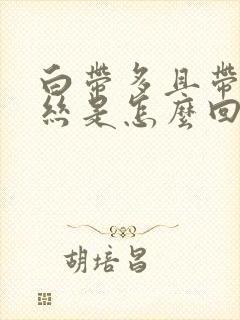 白帶多且帶
絲是怎麼回
胡培昌